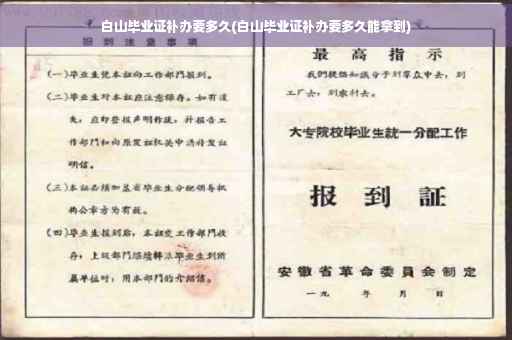 白山毕业证补办要多久(白山毕业证补办要多久能拿到)
报到注意事项
(一)毕业生凭本证向工作部门报到。
(二)毕业生对本证应注意保存。如有遗
失，应即登报声明作废，并报告工
作部门和向原发证机关申请补发证
明信。
(三)本证必须加盖省毕业生分配领导机
构公章方为有效。
(四)毕业生报到后，本证交工作部门收
存；上级部门
单位时，用本部门的介绍信。
最高指示
我们提倡知识分子到群众中去，到
工厂去，到农村去。
大专院校毕业生統一分配工作
报到証
安徽省革命委員会制定
一九 年 月 日